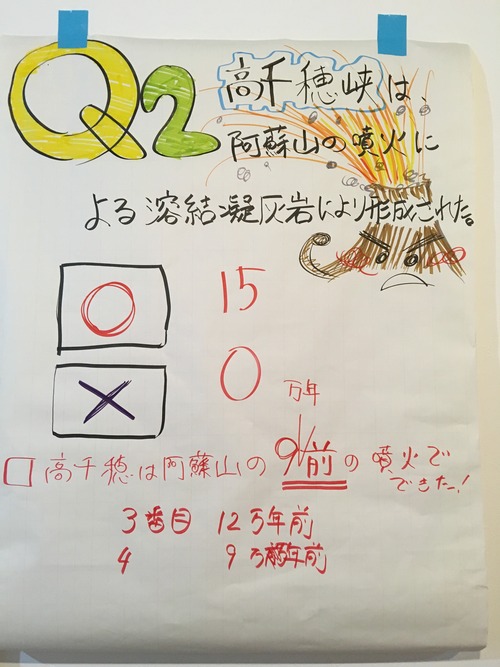 Q2 高千穂峡は、
阿蘇山の噴火に
よる溶結凝灰岩により形成された。
○ 15
× 0
万年
□ 高千穂は阿蘇山の 9/前の噴火で
できた!
3番目 12万年前
4 9万年前